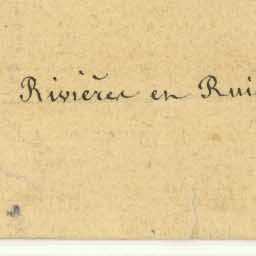 Rivières en Rui